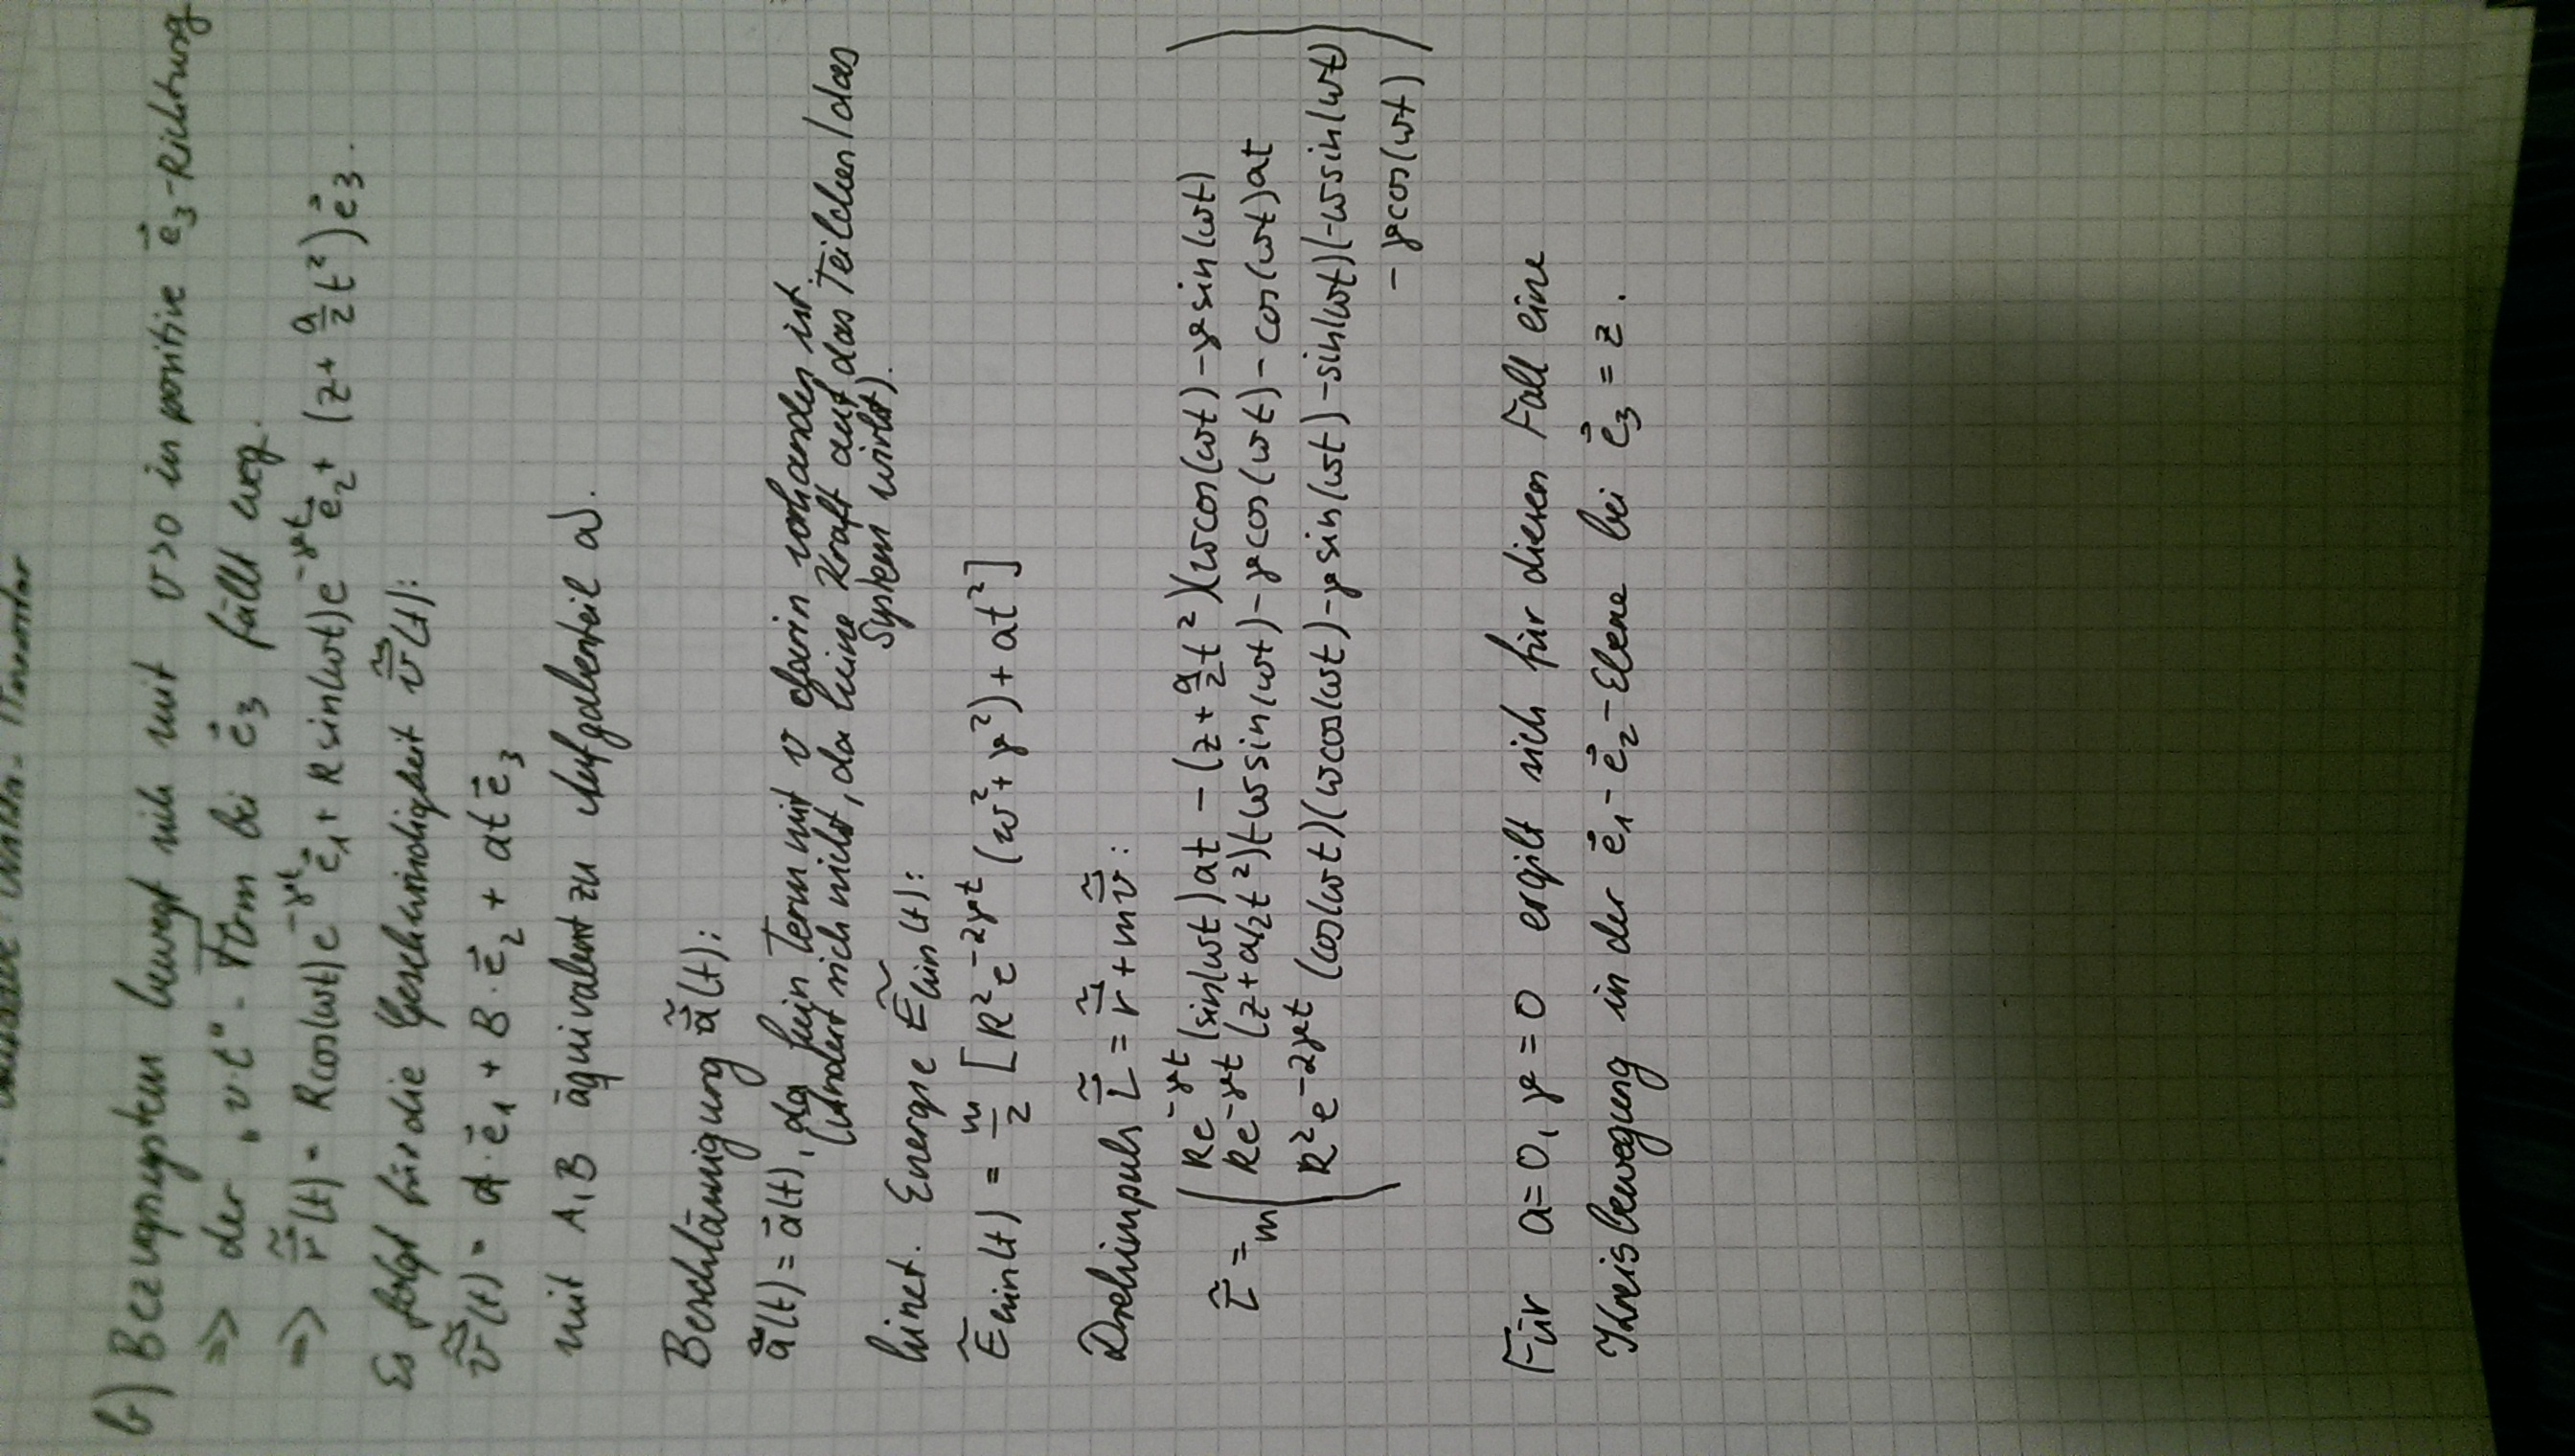 b) Bezugssystem bewegt sich mit v>0 in positive e⃗₃-Richtung
=> der "vt"-Term bei e⃗₃ fällt weg.
=> r̃⃗(t) = Rcos(ωt)e^-γt e⃗₁ + Rsin(ωt)e^-γt e⃗₂ + (z + a/2 t²)e⃗₃.
Es folgt für die Geschwindigkeit ṽ⃗(t):
ṽ⃗(t) = A·e⃗₁ + B·e⃗₂ + at e⃗₃
mit A,B äquivalent zu Aufgabenteil a).
Beschläunigung ã⃗(t):
ã⃗(t) = a⃗(t), da kein Term mit v darin vorhanden ist.
(ändert sich nicht, da keine Kraft auf das Teilchen/das
System wirkt).
kinet. Energie Ẽkin(t):
Ẽkin(t) = m/2 [R²e^-2γt (ω²+γ²) + at²]
Drehimpuls L̃⃗ = r̃⃗ + mṽ⃗:
Re^-γt (sin(ωt)at - (z + a/2 t²)(ωcos(ωt) - γsin(ωt)
L̃⃗ = m ( Re^-γt (z + a/2 t²)(-ωsin(ωt) - γcos(ωt) - cos(ωt)at )
R²e^-2γt (cos(ωt)(ωcos(ωt) - γsin(ωt) - sin(ωt)(-ωsin(ωt)
- γcos(ωt)
Für a=0, γ=0 ergibt sich für diesen Fall eine
Kreisbewegung in der e⃗₁-e⃗₂-Ebene bei e⃗₃ = z.